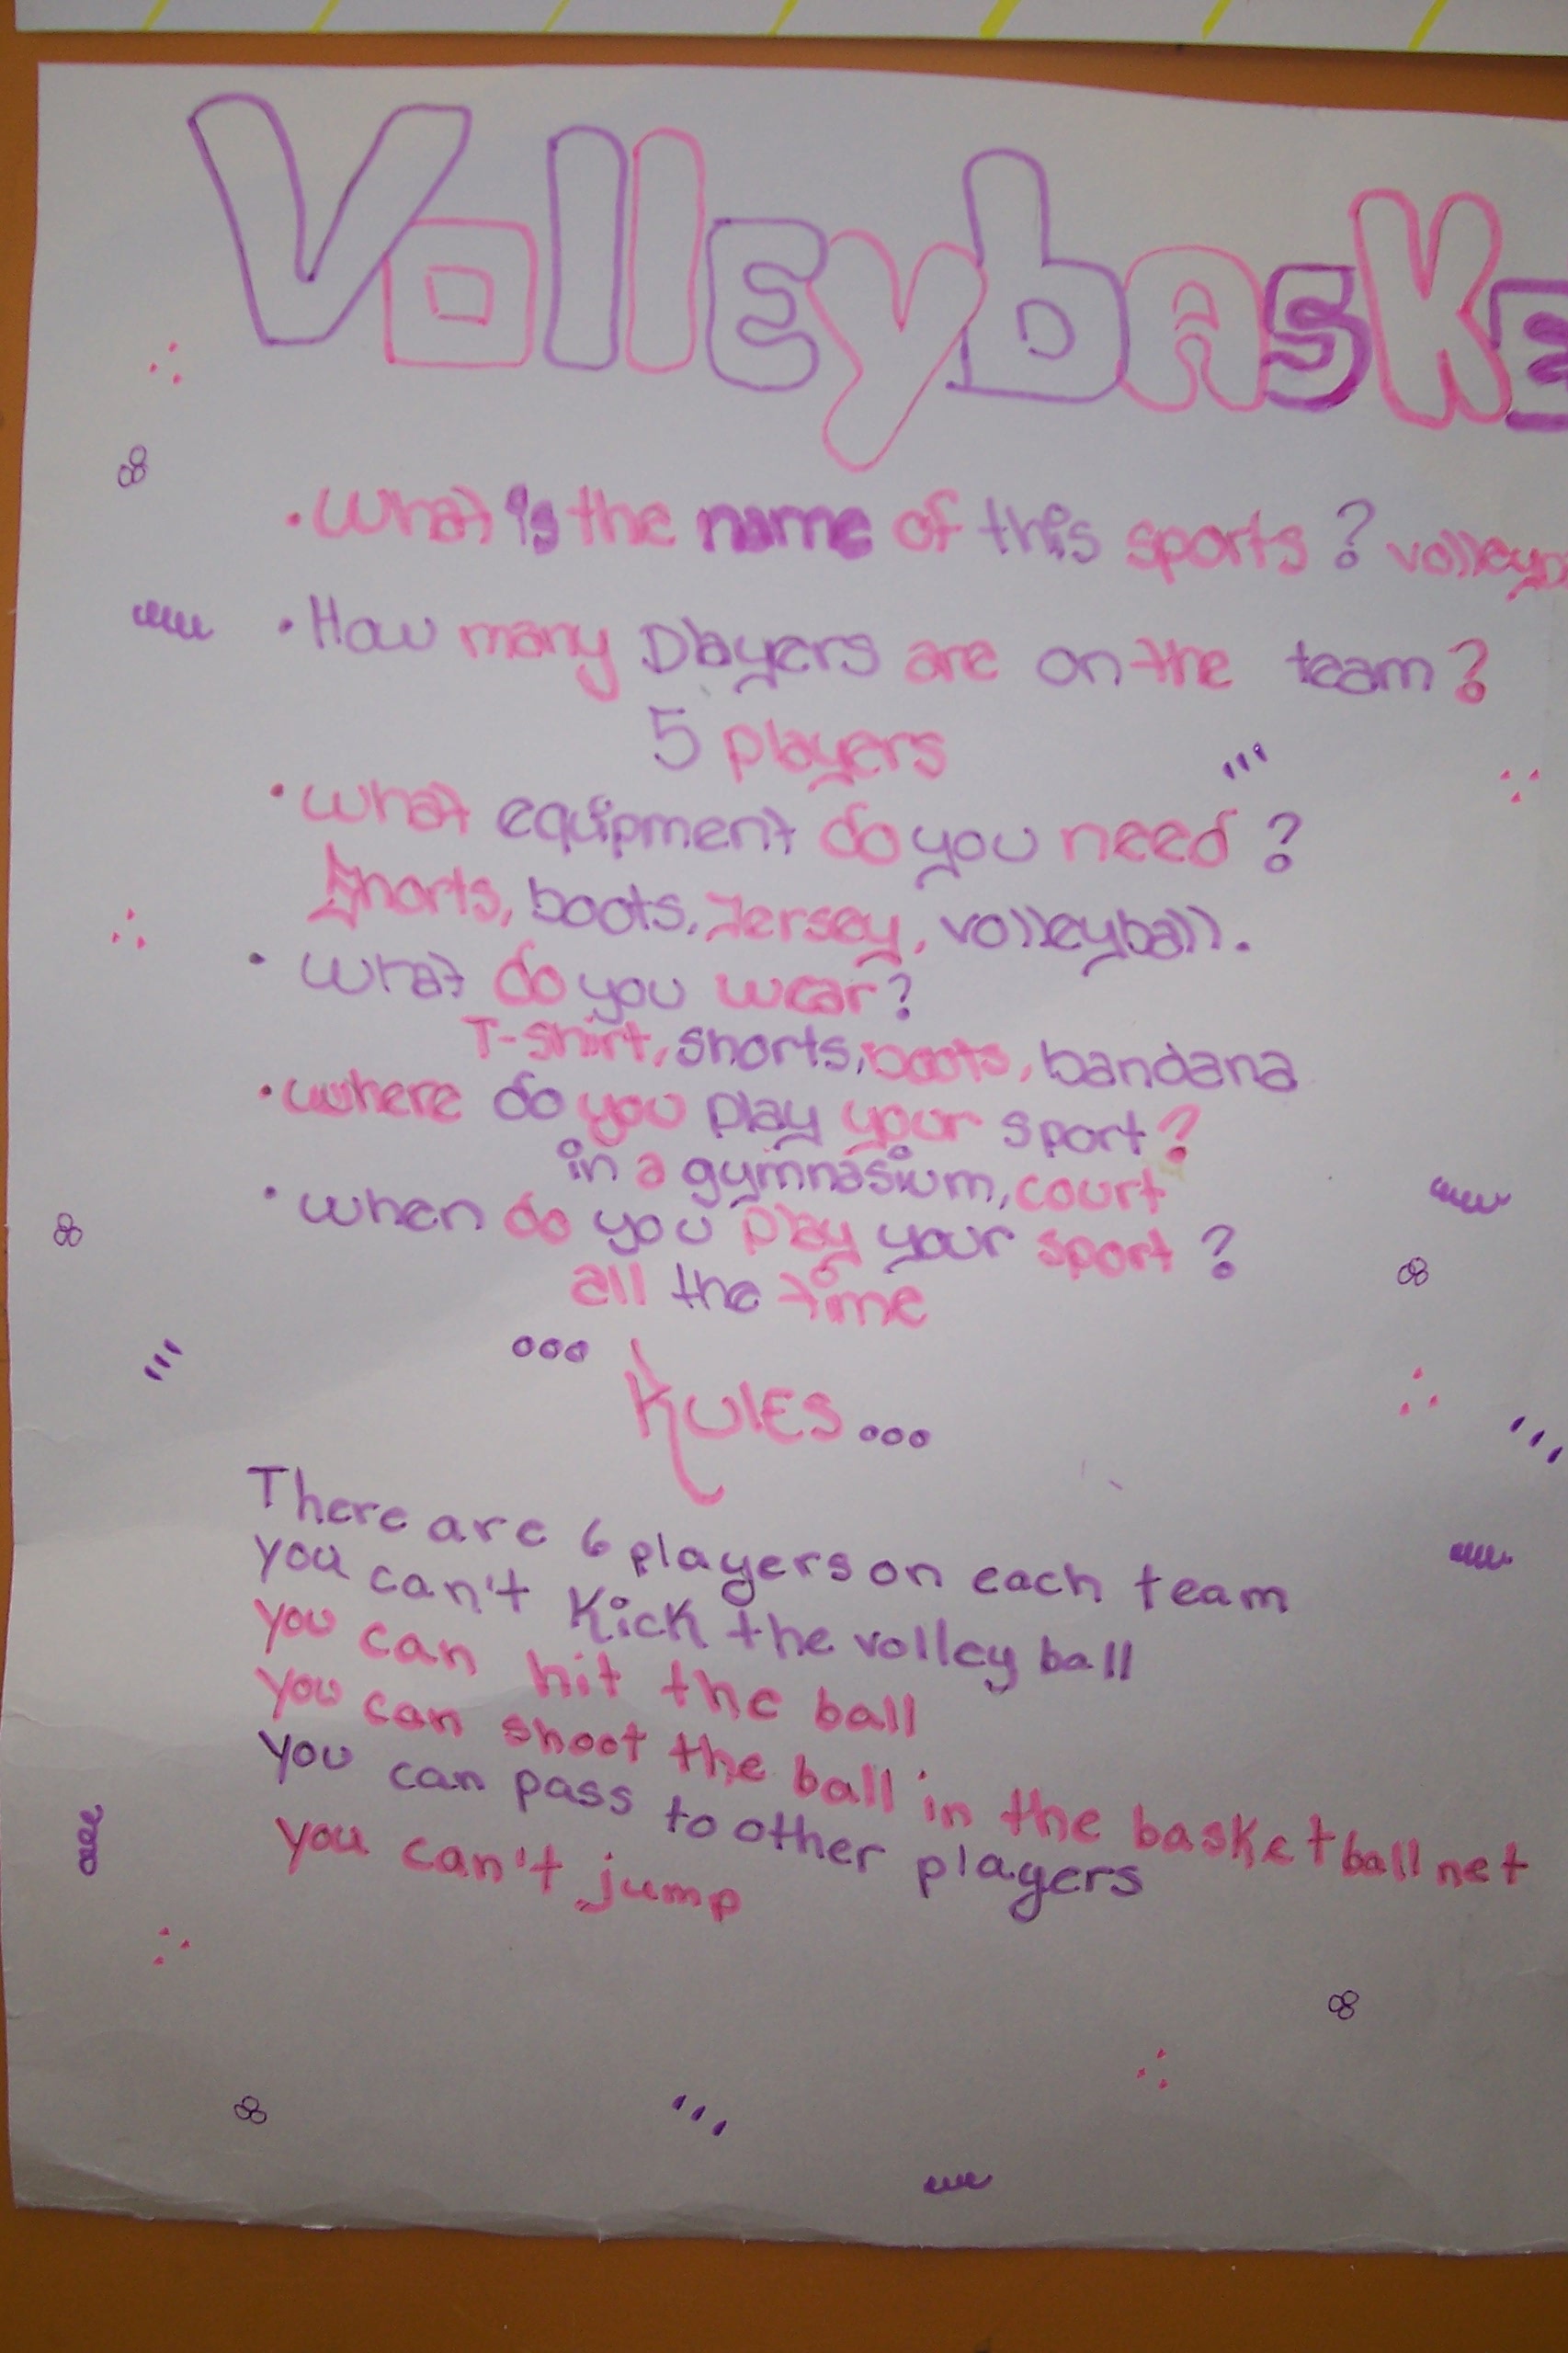 VollEybASKE
• What is the name of this sports? volleyb
• How many Players are on the team?
5 players
• What equipment do you need?
Shorts, boots, Jersey, volleyball.
• What do you wear?
T-shirt, shorts, boots, bandana
• Where do you play your sport?
in a gymnasium, court
• When do you play your sport?
all the time
RULES...
There are 6 players on each team
you can't kick the volley ball
you can hit the ball
you can shoot the ball in the basketball net
you can pass to other players
you can't jump